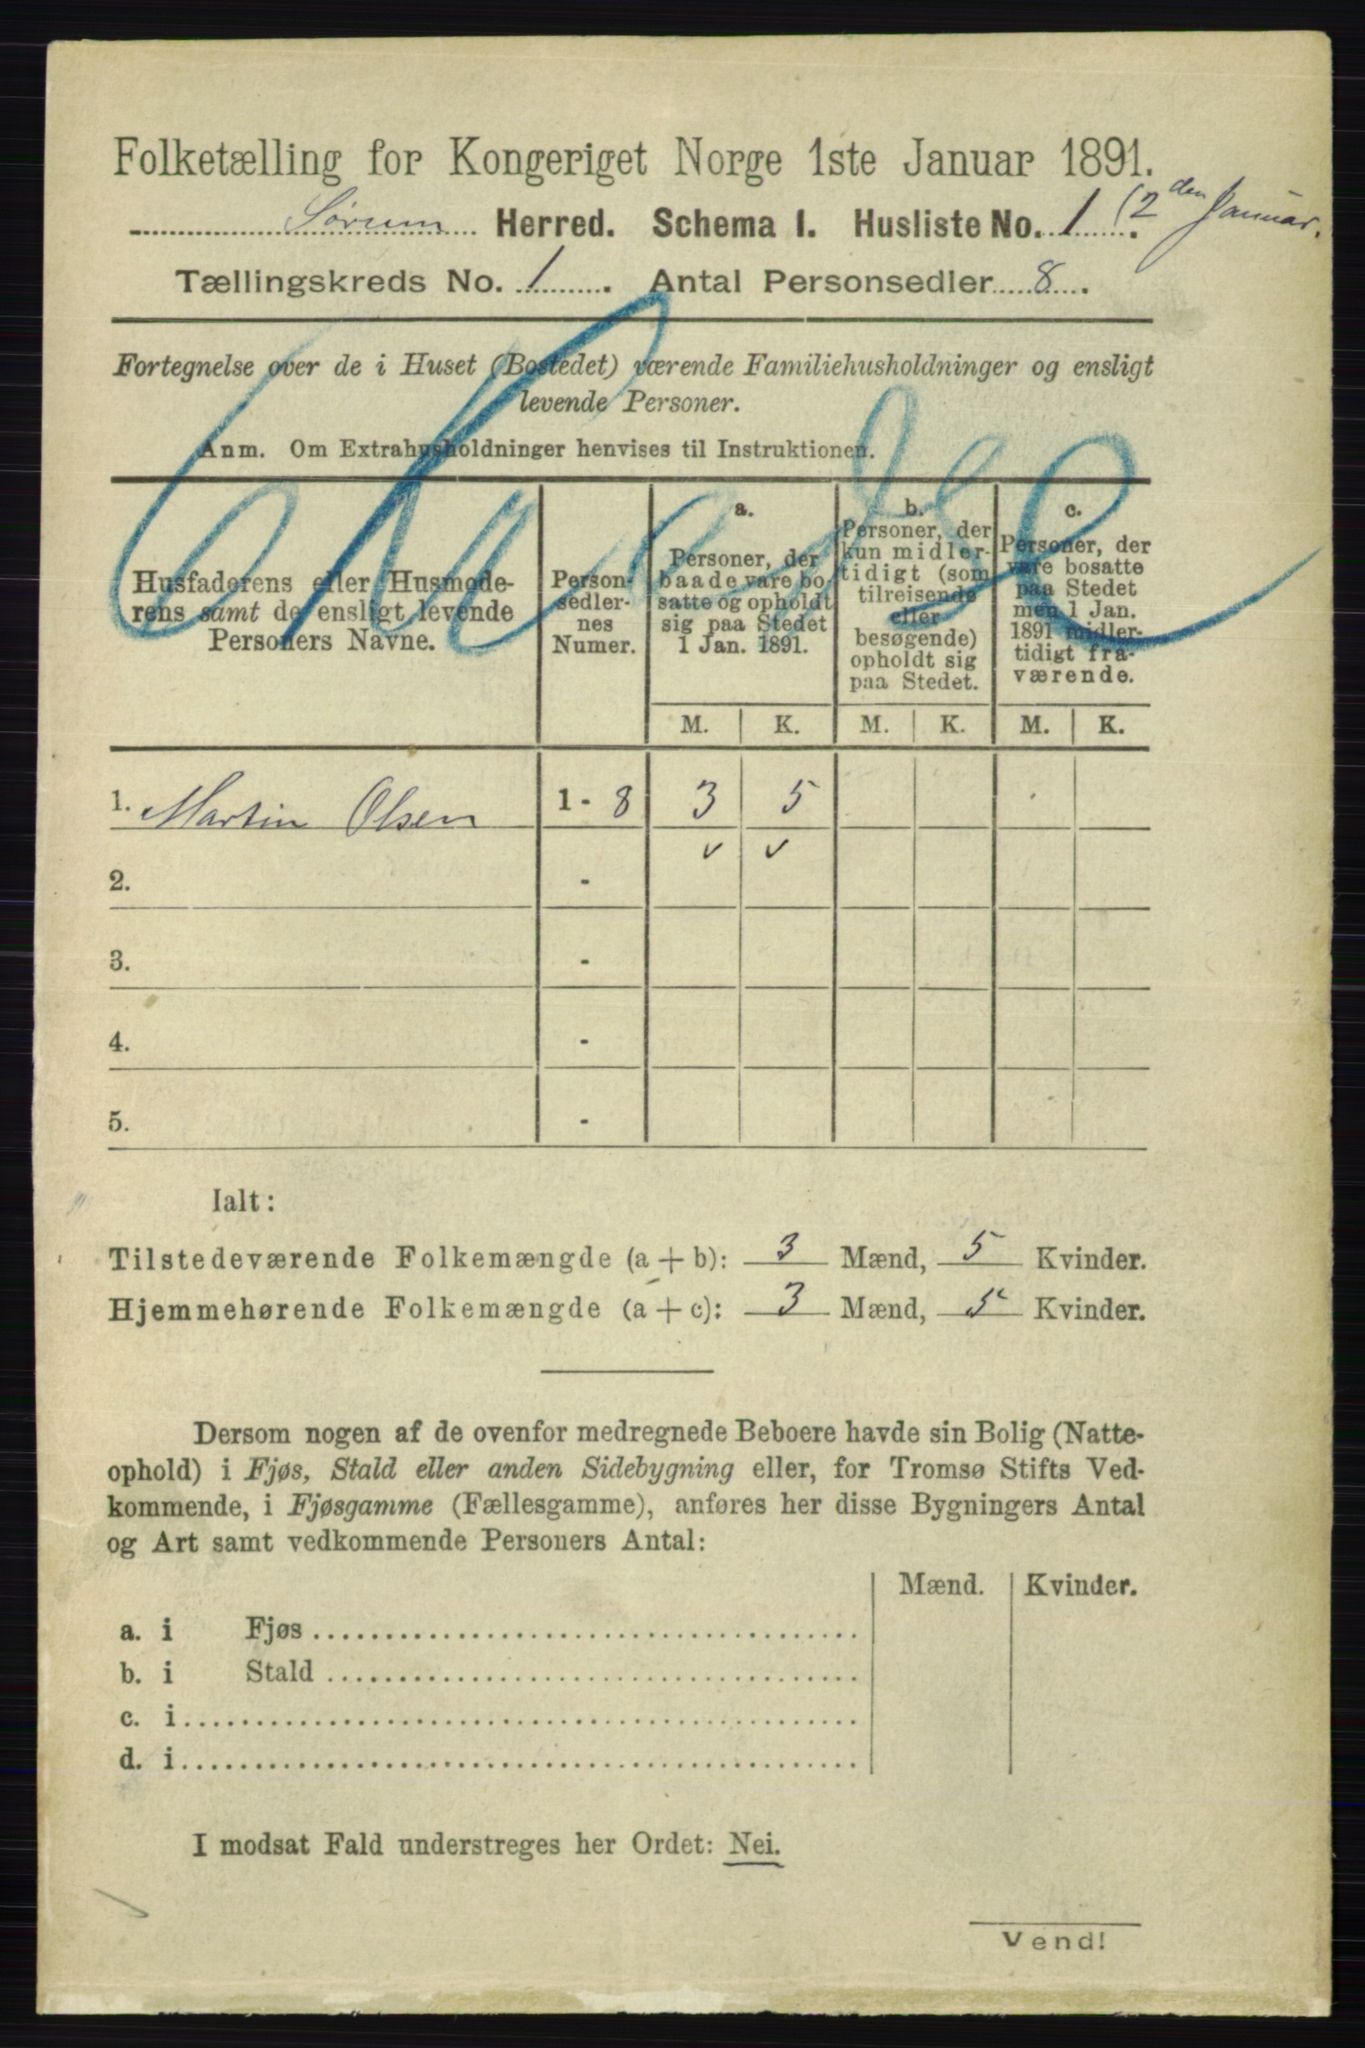 Folketælling for Kongeriget Norge 1ste Januar 1891.
Sørum Herred. Schema I. Husliste No. 1 (2den Januar.
Tællingskreds No. 1. Antal Personsedler 8.
Fortegnelse over de i Huset (Bostedet) værende Familiehusholdninger og ensligt
levende Personer.
Anm. Om Extrahusholdninger henvises til Instruktionen.
Husfaderens eller Husmode-
rens samt de ensligt levende
Personers Navne.
Person-
sedler-
nes
Numer.
a.
Personer, der
baade vare bo-
satte og opholdt
sig paa Stedet
1 Jan. 1891.
b.
Personer, der
kun midler-
tidigt (som
tilreisende
eller
besøgende)
opholdt sig
paa Stedet.
c.
Personer, der
vare bosatte
paa Stedet
men 1 Jan.
1891 midler-
tidigt fra-
værende.
M. K. M. K. M. K.
1. Martin Olsen 1 - 8 3 5
2. -
3. -
4. -
5. -
Ialt:
Tilstedeværende Folkemængde (a + b): 3 Mænd, 5 Kvinder.
Hjemmehørende Folkemængde (a + c): 3 Mænd, 5 Kvinder.
Dersom nogen af de ovenfor medregnede Beboere havde sin Bolig (Natte-
ophold) i Fjøs, Stald eller anden Sidebygning eller, for Tromsø Stifts Ved-
kommende, i Fjøsgamme (Fællesgamme), anføres her disse Bygningers Antal
og Art samt vedkommende Personers Antal:
Mænd. Kvinder.
a. i Fjøs
b. i Stald
c. i
d. i
I modsat Fald understreges her Ordet: Nei.
Vend!